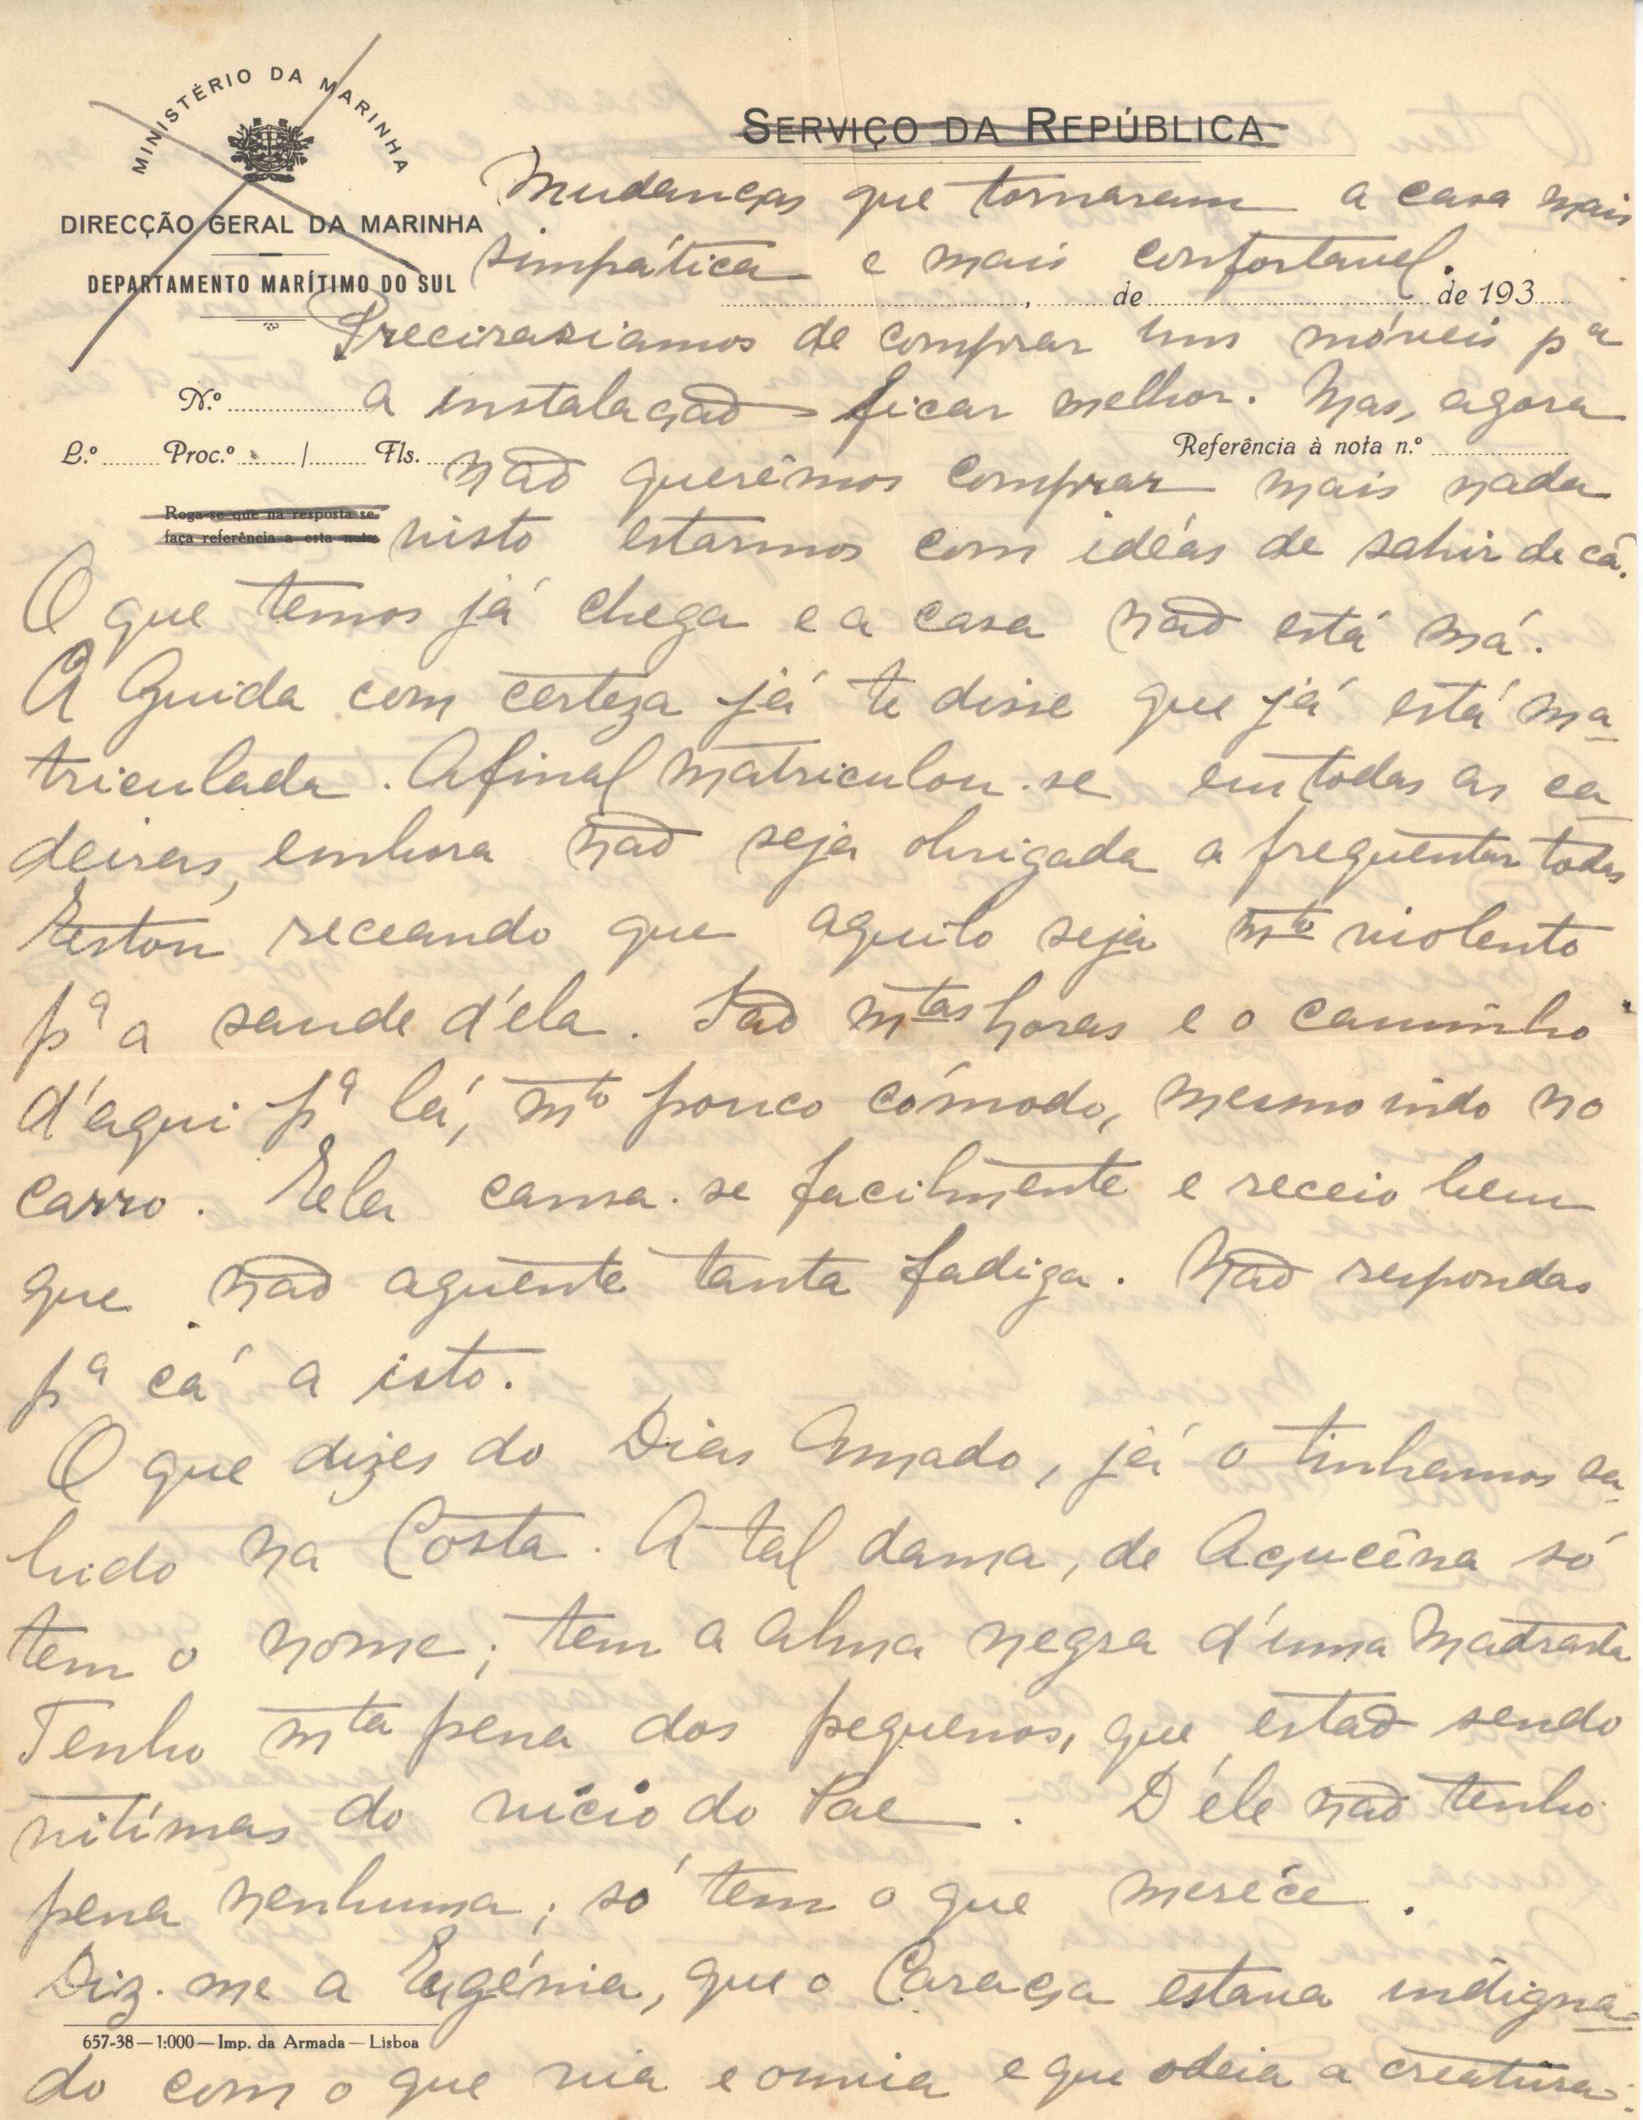 MINISTÉRIO DA MARINHA
SERVIÇO DA REPÚBLICA
DIRECÇÃO GERAL DA MARINHA
DEPARTAMENTO MARÍTIMO DO SUL
Mudanças que tornaram a casa mais
simpática e mais confortavel.
de de 193
Precisaziamos de comprar uns móveis pª
N.º
a instalação ficar melhor. Mas, agora
L.º Proc.º / Fls.
Referência à nota n.º
não querêmos comprar mais nada
Roga-se que na resposta se
faça referência a esta nota
visto estarmos com idéas de sahir de cá.
O que temos já chega e a casa não está má.
A Guida com certeza já te disse que já está ma-
triculada. Afinal matriculou-se em todas as ca-
deiras, embora não seja obrigada a freqüentar todas
Estou receando que aquilo seja mto violento
pª a saude d'éla. São mtas horas e o caminho
d'aqui pª lá, mto pouco cómodo, mesmo indo no
carro. Ela cansa-se facilmente e receio bem
que não agüente tanta fadiga. Não respondas
pª cá a isto.
O que dizes do Dias Amado, já o tinhamos sa-
bido na Costa. A tal dama, de Açucêna só
tem o nome; tem a alma negra d'uma Madrasta
Tenho mta pena dos pequenos, que estão sendo
vitímas do vício do Pae. D'éle não tenho
pena nenhuma; só tem o que meréce.
Diz-me a Eugénia, que o Caraça estava indigna-
657-38—1:000—Imp. da Armada—Lisboa
do com o que via e ouvia e que odeia a creatura.